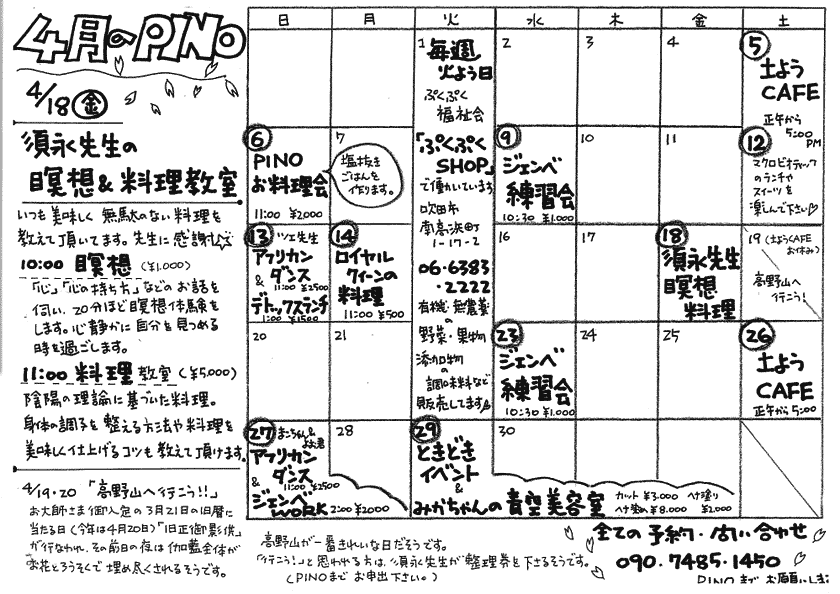 4月のPINO
4/18 金
須永先生の
瞑想&料理教室
いつも美味しく無駄のない料理を
教えて頂いてます。先生に感謝☆
10:00 瞑想 (¥1,000)
「心」「心の持ち方」などのお話を
伺い、20分ほど瞑想体験を
します。心静かに自分を見つめる
時を過ごします。
11:00 料理教室 (¥5,000)
陰陽の理論に基づいた料理。
身体の調子を整える方法や料理を
美味しく仕上げるコツも教えて頂けます。
4/19・20 「高野山へ行こう!!」
お大師さま御入定の3月21日の旧暦に
当たる日(今年は4月20日)「旧正御影供」
が行なわれ、その前日の夜は伽藍全体が
お花とろうそくで埋め尽くされるそうです。
日 月 火 水 木 金 土
1 毎週
火よう日
ぷくぷく
福祉会
「ぷくぷく
SHOP」
で働いています
吹田市
南高浜町
1-17-2
06・6383
・2222
有機・無農薬
の
野菜・果物
添加物の
調味料など
販売してます
2
3
4
5
土よう
CAFE
正午から
5:00
PM
6
PINO
お料理会
11:00 ¥2000
7
塩抜き
ごはんを
作ります。
9
ジェンベ
練習会
10:30 ¥1,000
10
11
12
マクロビオティック
のランチや
スイーツを
楽しんで下さい♡
13 ツェ先生
アフリカン
&ダンス
11:00 ¥2500
デトックスランチ
1:00 ¥1500
14
ロイヤル
クィーンの
料理
11:00 ¥500
16
17
18
須永先生
瞑想
料理
19 (土ようCAFE
お休み)
高野山へ
行こう!
20
21
23
ジェンベ
練習会
10:30 ¥1,000
24
25
26
土よう
CAFE
正午から5:00
27
アフリカン
&ダンス
11:00 ¥2500
ジェンベ
WORK 2:00 ¥2000
28
29
ときどき
イベント
&
みかちゃんの青空美容室
カット ¥3,000 ヘナ塗り
ヘナ染め ¥8,000 ¥2,000
30
高野山が一番きれいな日だそうです。
「行こう!」と思われる方は、須永先生が整理券を下さるそうです。
(PINOまでお申出下さい。)
全ての予約・問い合わせ
090・7485・1450
PINOまでお願いしま